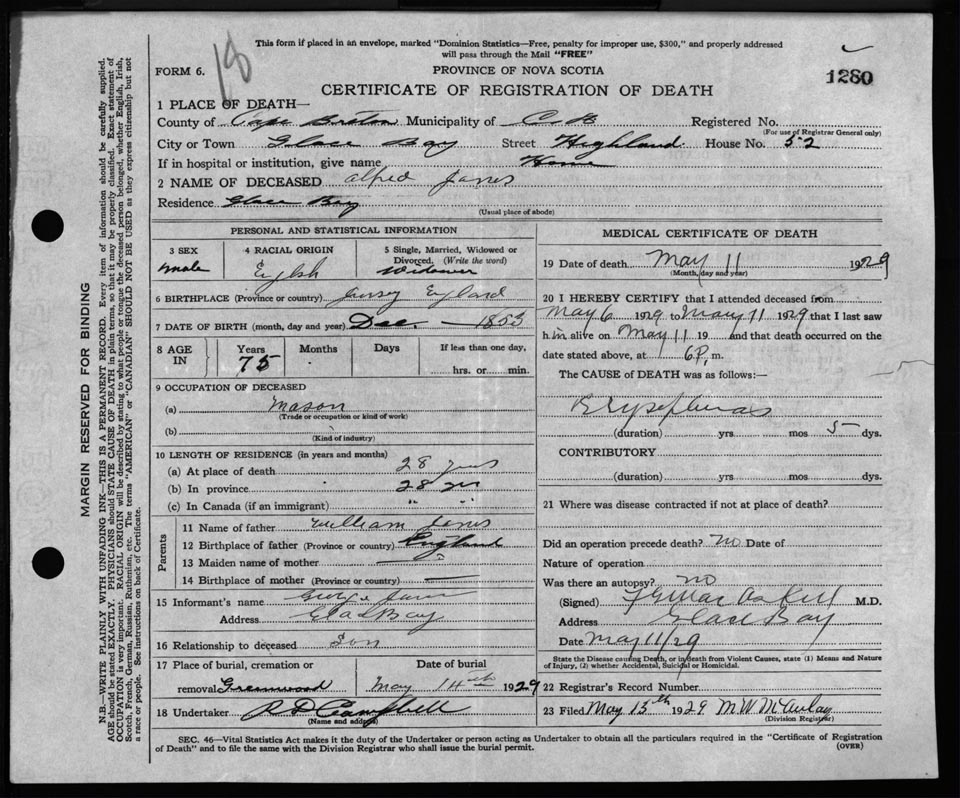 This form if placed in an envelope, marked "Dominion Statistics—Free, penalty for improper use, $300," and properly addressed
will pass through the Mail "FREE"
18
FORM 6.
PROVINCE OF NOVA SCOTIA
1280
CERTIFICATE OF REGISTRATION OF DEATH
1 PLACE OF DEATH—
County of Cape Breton Municipality of C B Registered No.
(For use of Registrar General only)
City or Town Glace Bay Street Highland House No. 52
If in hospital or institution, give name Home
2 NAME OF DECEASED Alfred James
Residence Glace Bay
(Usual place of abode)
PERSONAL AND STATISTICAL INFORMATION
3 SEX 4 RACIAL ORIGIN 5 Single, Married, Widowed or
Divorced. (Write the word)
Male English Widower
6 BIRTHPLACE (Province or country) Jersey England
7 DATE OF BIRTH (month, day and year) Dec. — 1853
8 AGE IN Years Months Days If less than one day,
75 hrs. or min.
9 OCCUPATION OF DECEASED
(a) Mason
(Trade or occupation or kind of work)
(b)
(Kind of industry)
10 LENGTH OF RESIDENCE (in years and months)
(a) At place of death 28 yrs
(b) In province 28 yrs
(c) In Canada (if an immigrant) " "
Parents
11 Name of father William James
12 Birthplace of father (Province or country) England
13 Maiden name of mother — ?
14 Birthplace of mother (Province or country) —
15 Informant's name George James
Address Glace Bay
16 Relationship to deceased Son
17 Place of burial, cremation or Date of burial
removal Greenwood May 14th 1929
18 Undertaker Campbell
(Name and address)
MEDICAL CERTIFICATE OF DEATH
19 Date of death May 11 1929
(Month, day and year)
20 I HEREBY CERTIFY that I attended deceased from
May 6 1929 to May 11 1929 that I last saw
h im alive on May 11 19 and that death occurred on the
date stated above, at 6 P. m.
The CAUSE of DEATH was as follows:—
Erysipelas
(duration) yrs mos 5 dys.
CONTRIBUTORY
(duration) yrs. mos. dys.
21 Where was disease contracted if not at place of death?
Did an operation precede death? No Date of
Nature of operation
Was there an autopsy? no
(Signed) M.D.
Address Glace Bay
Date May 11/29
State the Disease causing Death, or in death from Violent Causes, state (1) Means and Nature
of Injury, (2) whether Accidental, Suicidal or Homicidal.
22 Registrar's Record Number
23 Filed May 15th 1929 M W McAulay
(Division Registrar)
SEC. 46—Vital Statistics Act makes it the duty of the Undertaker or person acting as Undertaker to obtain all the particulars required in the "Certificate of Registration
of Death" and to file the same with the Division Registrar who shall issue the burial permit.
(OVER)
MARGIN RESERVED FOR BINDING
N.B.—WRITE PLAINLY WITH UNFADING INK—THIS IS A PERMANENT RECORD. Every item of information should be carefully supplied.
AGE should be stated EXACTLY. PHYSICIANS should STATE CAUSE OF DEATH in plain terms, so that it may be properly classified. Exact statement of
OCCUPATION is very important. RACIAL ORIGIN will be described by stating to what people or tongue the deceased person belonged, whether English, Irish,
Scotch, French, German, Russian, Ruthenian, etc. The terms "AMERICAN" or "CANADIAN" SHOULD NOT BE USED as they express citizenship but not
a race or people. See instructions on back of Certificate.